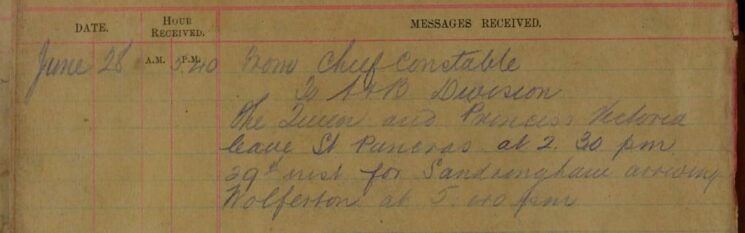 DATE. HOUR RECEIVED. MESSAGES RECEIVED.
A.M. P.M.
June 28 5.40 From Chief Constable
To A & B Division
The Queen and Princess Victoria
leave St Pancras at 2.30 pm
29th inst for Sandringham arriving
Wolferton at 5.40 pm